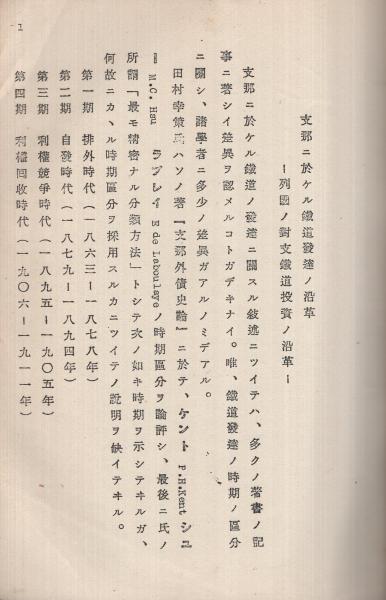 支那ニ於ケル鐵道發達ノ沿革
ー列國ノ對支鐵道投資ノ沿革ー
支那ニ於ケル鐵道ノ發達ニ關スル敍述ニツイテハ、多クノ著書ノ記
事ニ著シイ差異ヲ認メルコトガデキナイ。唯、鐵道發達ノ時期ノ區分
ニ關シ、諸學者ニ多少ノ差異ガアルノミデアル。
田村幸策氏ハソノ著『支那外債史論』ニ於テ、ケント P.H.Kent シユ
ー M.C. Hsu ラブレイ E de Leboulaye ノ時期區分ヲ論評シ、最後ニ氏ノ
所謂「最モ精密ナル分類方法」トシテ次ノ如キ時期ヲ示シテヰルガ、
何故ニカヽル時期區分ヲ採用スルカニツイテノ説明ヲ缺イテヰル。
第一期 排外時代（一八六三ー一八七八年）
第二期 自發時代（一八七九ー一八九四年）
第三期 利權競爭時代（一八九五ー一九〇五年）
第四期 利權回收時代（一九〇六ー一九一一年）
1